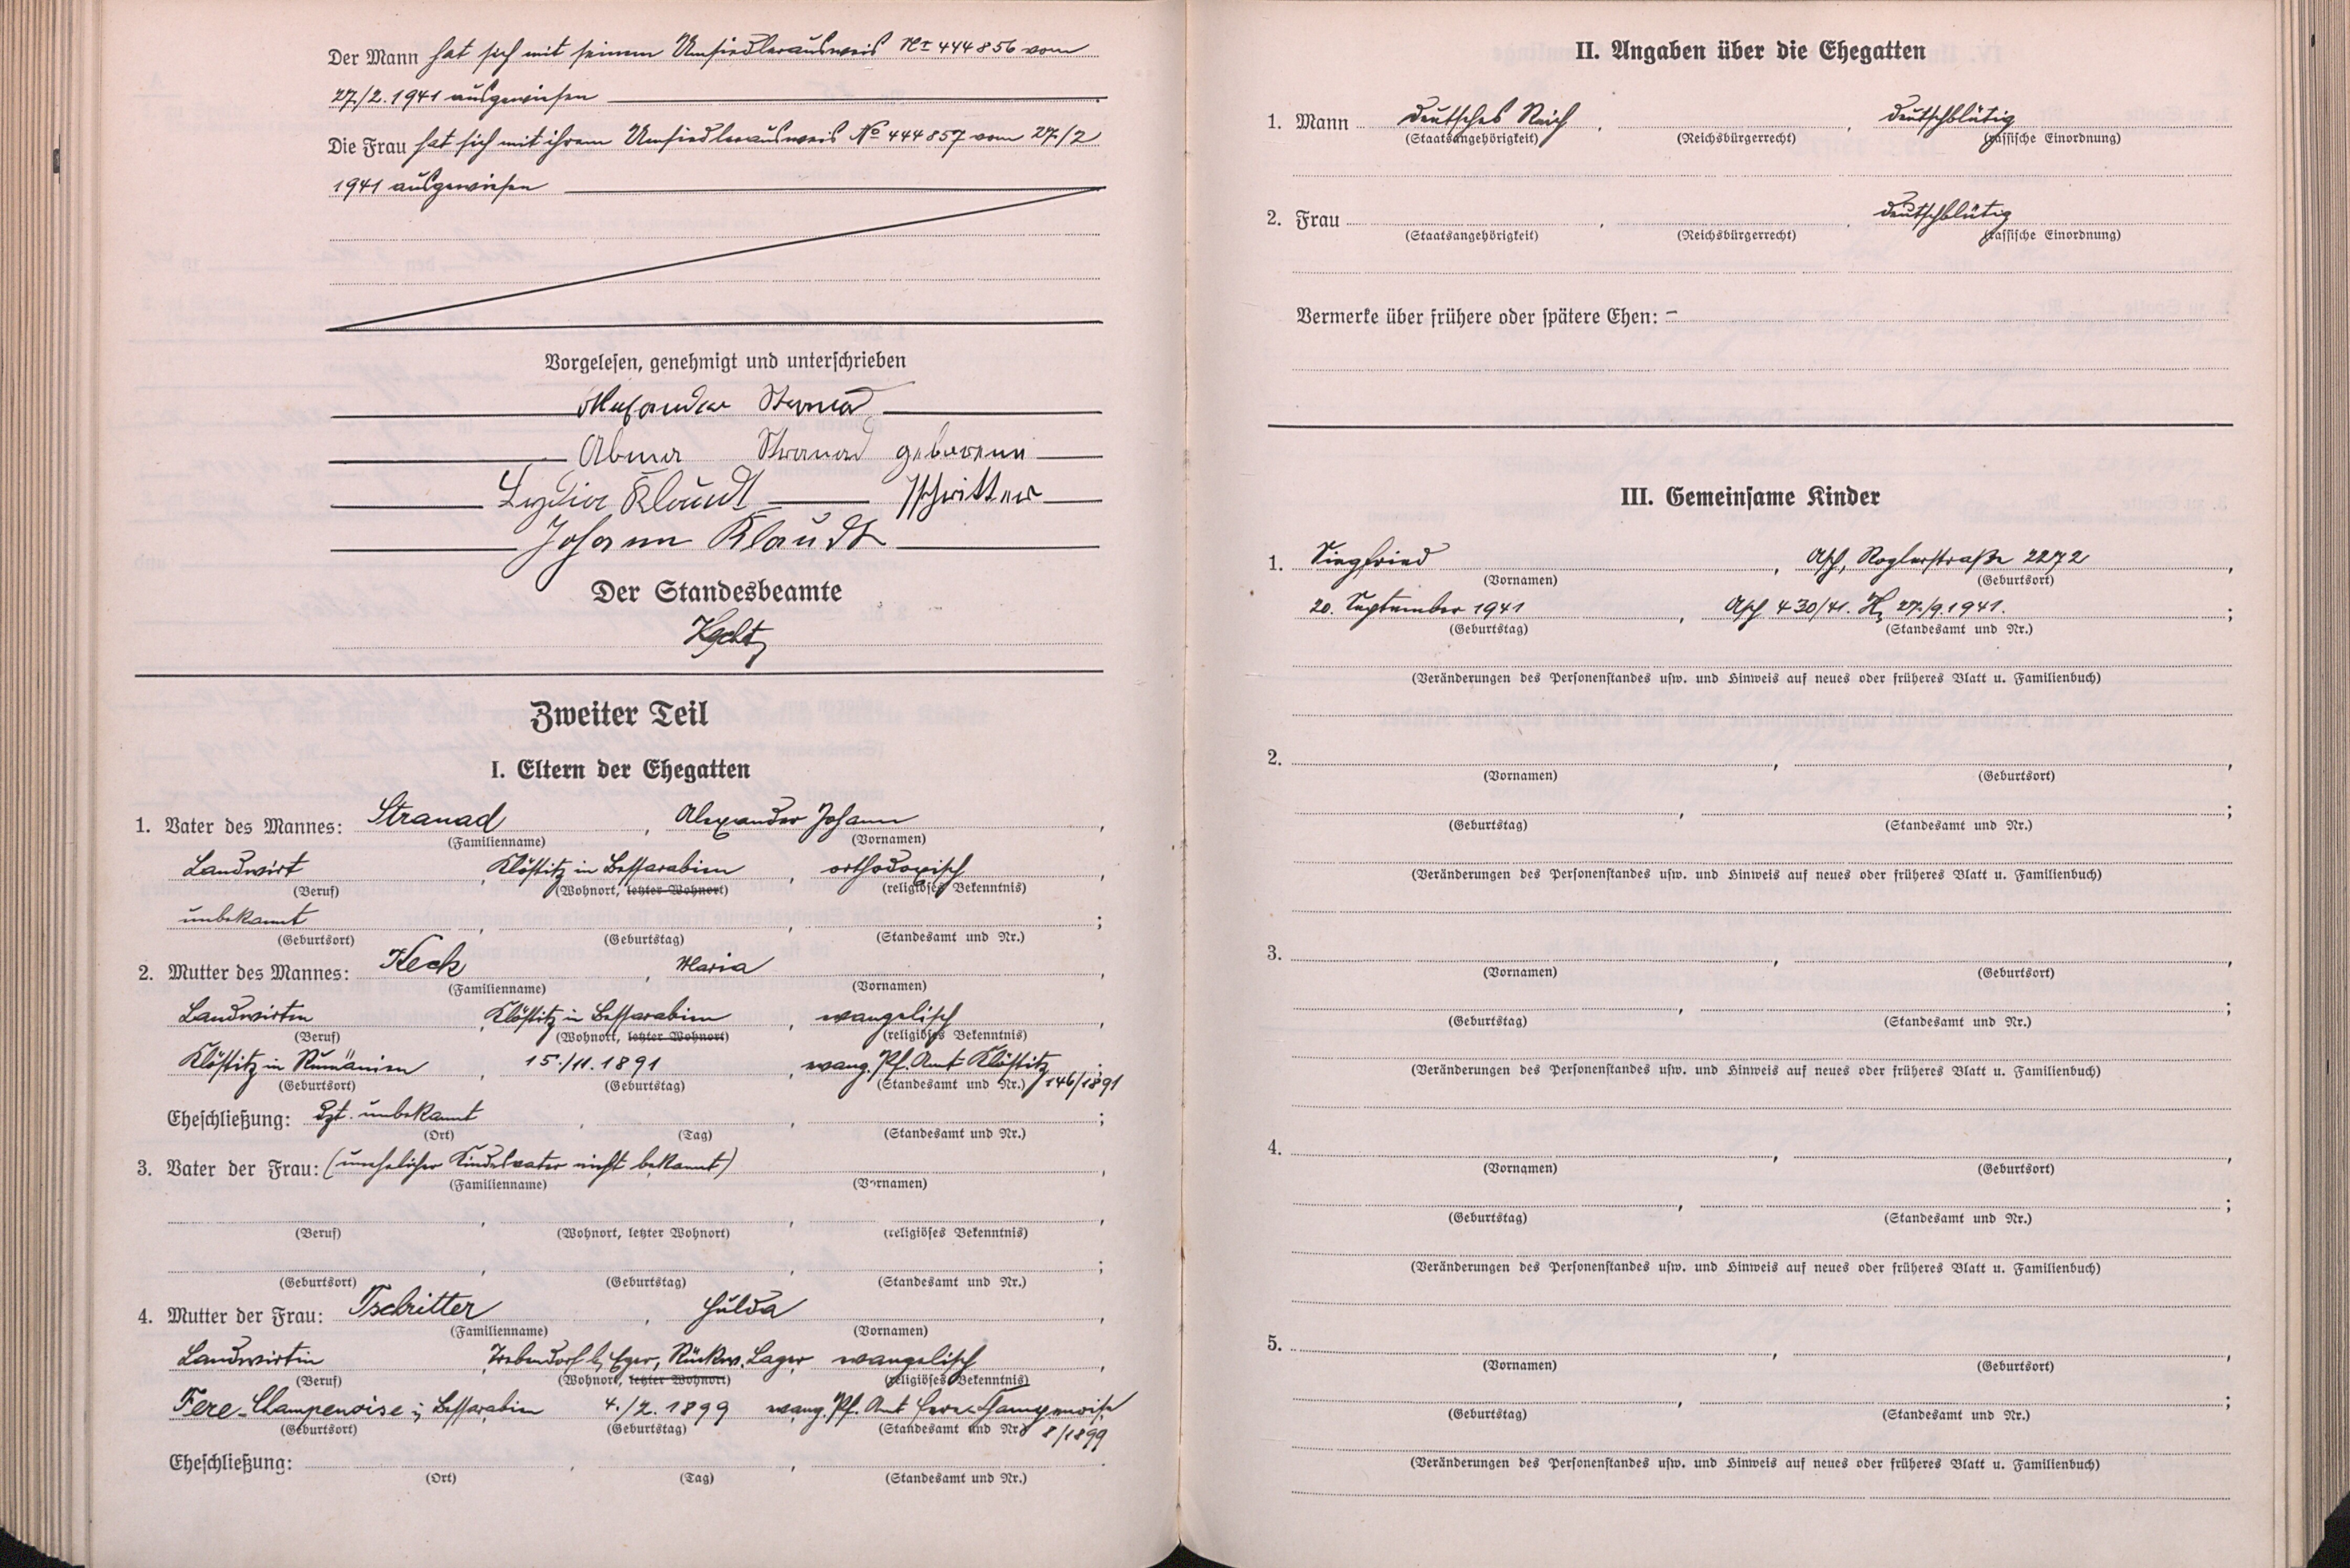 Der Mann hat sich mit seinem Umsiedlerausweis No 444856 vom
27./2. 1941 ausgewiesen
Die Frau hat sich mit ihrem Umsiedlerausweis No 444857 vom 27./2
1941 ausgewiesen
Vorgelesen, genehmigt und unterschrieben
Alexander Stranad
Stranad geborene
Lydia Klaudt Tschritter
Johann Klaudt
Der Standesbeamte
Zweiter Teil
I. Eltern der Ehegatten
1. Vater des Mannes: Stranad, Alexander Johann,
(Familienname) (Vornamen)
Landwirt, Klöstitz in Bessarabien, orthodoxisch,
(Beruf) (Wohnort, letzter Wohnort) (religiöses Bekenntnis)
unbekannt, , ;
(Geburtsort) (Geburtstag) (Standesamt und Nr.)
2. Mutter des Mannes: Keck, Maria,
(Familienname) (Vornamen)
Landwirtin, Klöstitz in Bessarabien, evangelisch,
(Beruf) (Wohnort, letzter Wohnort) (religiöses Bekenntnis)
Klöstitz in Rumänien, 15./11. 1891, evang. Pf. Amt Klöstitz;
(Geburtsort) (Geburtstag) (Standesamt und Nr.) 146/1891
Eheschließung: dzt. unbekannt, , ;
(Ort) (Tag) (Standesamt und Nr.)
3. Vater der Frau: (unehelicher Kindesvater nicht bekannt),
(Familienname) (Vornamen)
, , ,
(Beruf) (Wohnort, letzter Wohnort) (religiöses Bekenntnis)
, , ;
(Geburtsort) (Geburtstag) (Standesamt und Nr.)
4. Mutter der Frau: Tschritter, Hulda,
(Familienname) (Vornamen)
Landwirtin, Trebendorf b. Eger, Rückw. Lager evangelisch,
(Beruf) (Wohnort, letzter Wohnort) (religiöses Bekenntnis)
Fere-Champenoise i. Bessarabien 4./2. 1899 evang. Pf. Amt Fere-Champenoise
(Geburtsort) (Geburtstag) (Standesamt und Nr.) 8/1899
Eheschließung: , , .
(Ort) (Tag) (Standesamt und Nr.)
II. Angaben über die Ehegatten
1. Mann Deutsches Reich, , deutschblütig
(Staatsangehörigkeit) (Reichsbürgerrecht) (rassische Einordnung)
2. Frau , , deutschblütig
(Staatsangehörigkeit) (Reichsbürgerrecht) (rassische Einordnung)
Vermerke über frühere oder spätere Ehen: –
III. Gemeinsame Kinder
1. Siegfried, Asch, Roglerstraße 2272,
(Vornamen) (Geburtsort)
20. September 1941, Asch 430/41. 27./9. 1941.;
(Geburtstag) (Standesamt und Nr.)
(Veränderungen des Personenstandes usw. und Hinweis auf neues oder früheres Blatt u. Familienbuch)
2. , ,
(Vornamen) (Geburtsort)
, ;
(Geburtstag) (Standesamt und Nr.)
(Veränderungen des Personenstandes usw. und Hinweis auf neues oder früheres Blatt u. Familienbuch)
3. , ,
(Vornamen) (Geburtsort)
, ;
(Geburtstag) (Standesamt und Nr.)
(Veränderungen des Personenstandes usw. und Hinweis auf neues oder früheres Blatt u. Familienbuch)
4. , ,
(Vornamen) (Geburtsort)
, ;
(Geburtstag) (Standesamt und Nr.)
(Veränderungen des Personenstandes usw. und Hinweis auf neues oder früheres Blatt u. Familienbuch)
5. , ,
(Vornamen) (Geburtsort)
, ;
(Geburtstag) (Standesamt und Nr.)
(Veränderungen des Personenstandes usw. und Hinweis auf neues oder früheres Blatt u. Familienbuch)